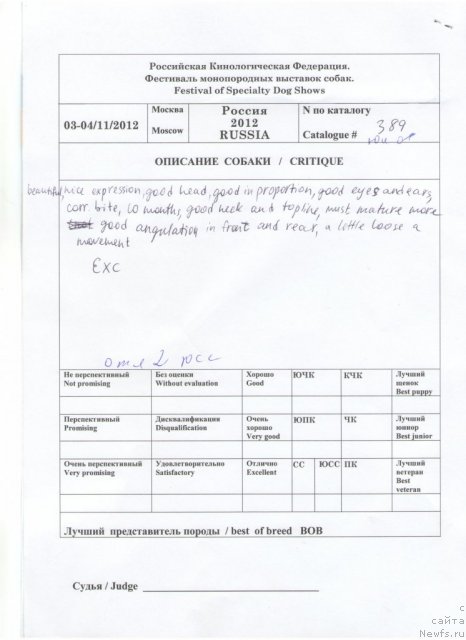 Российская Кинологическая Федерация.
Фестиваль монопородных выставок собак.
Festival of Specialty Dog Shows
03-04/11/2012
Москва
Moscow
Россия
2012
RUSSIA
N по каталогу
Catalogue # 389
ОПИСАНИЕ СОБАКИ / CRITIQUE
beautiful, nice expression, good head, good in proportion, good eyes and ears,
corr. bite, 10 months, good neck and topline, must mature more
good angulation in front and rear, a little loose a
movement
Exc
отл 2 юсс
Не перспективный
Not promising
Без оценки
Without evaluation
Хорошо
Good
ЮЧК
КЧК
Лучший
щенок
Best puppy
Перспективный
Promising
Дисквалификация
Disqualification
Очень
хорошо
Very good
ЮПК
ЧК
Лучший
юниор
Best junior
Очень перспективный
Very promising
Удовлетворительно
Satisfactory
Отлично
Excellent
СС
ЮСС
ПК
Лучший
ветеран
Best
veteran
Лучший представитель породы / best of breed BOB
Судья / Judge
с
сайта
Newfs.ru